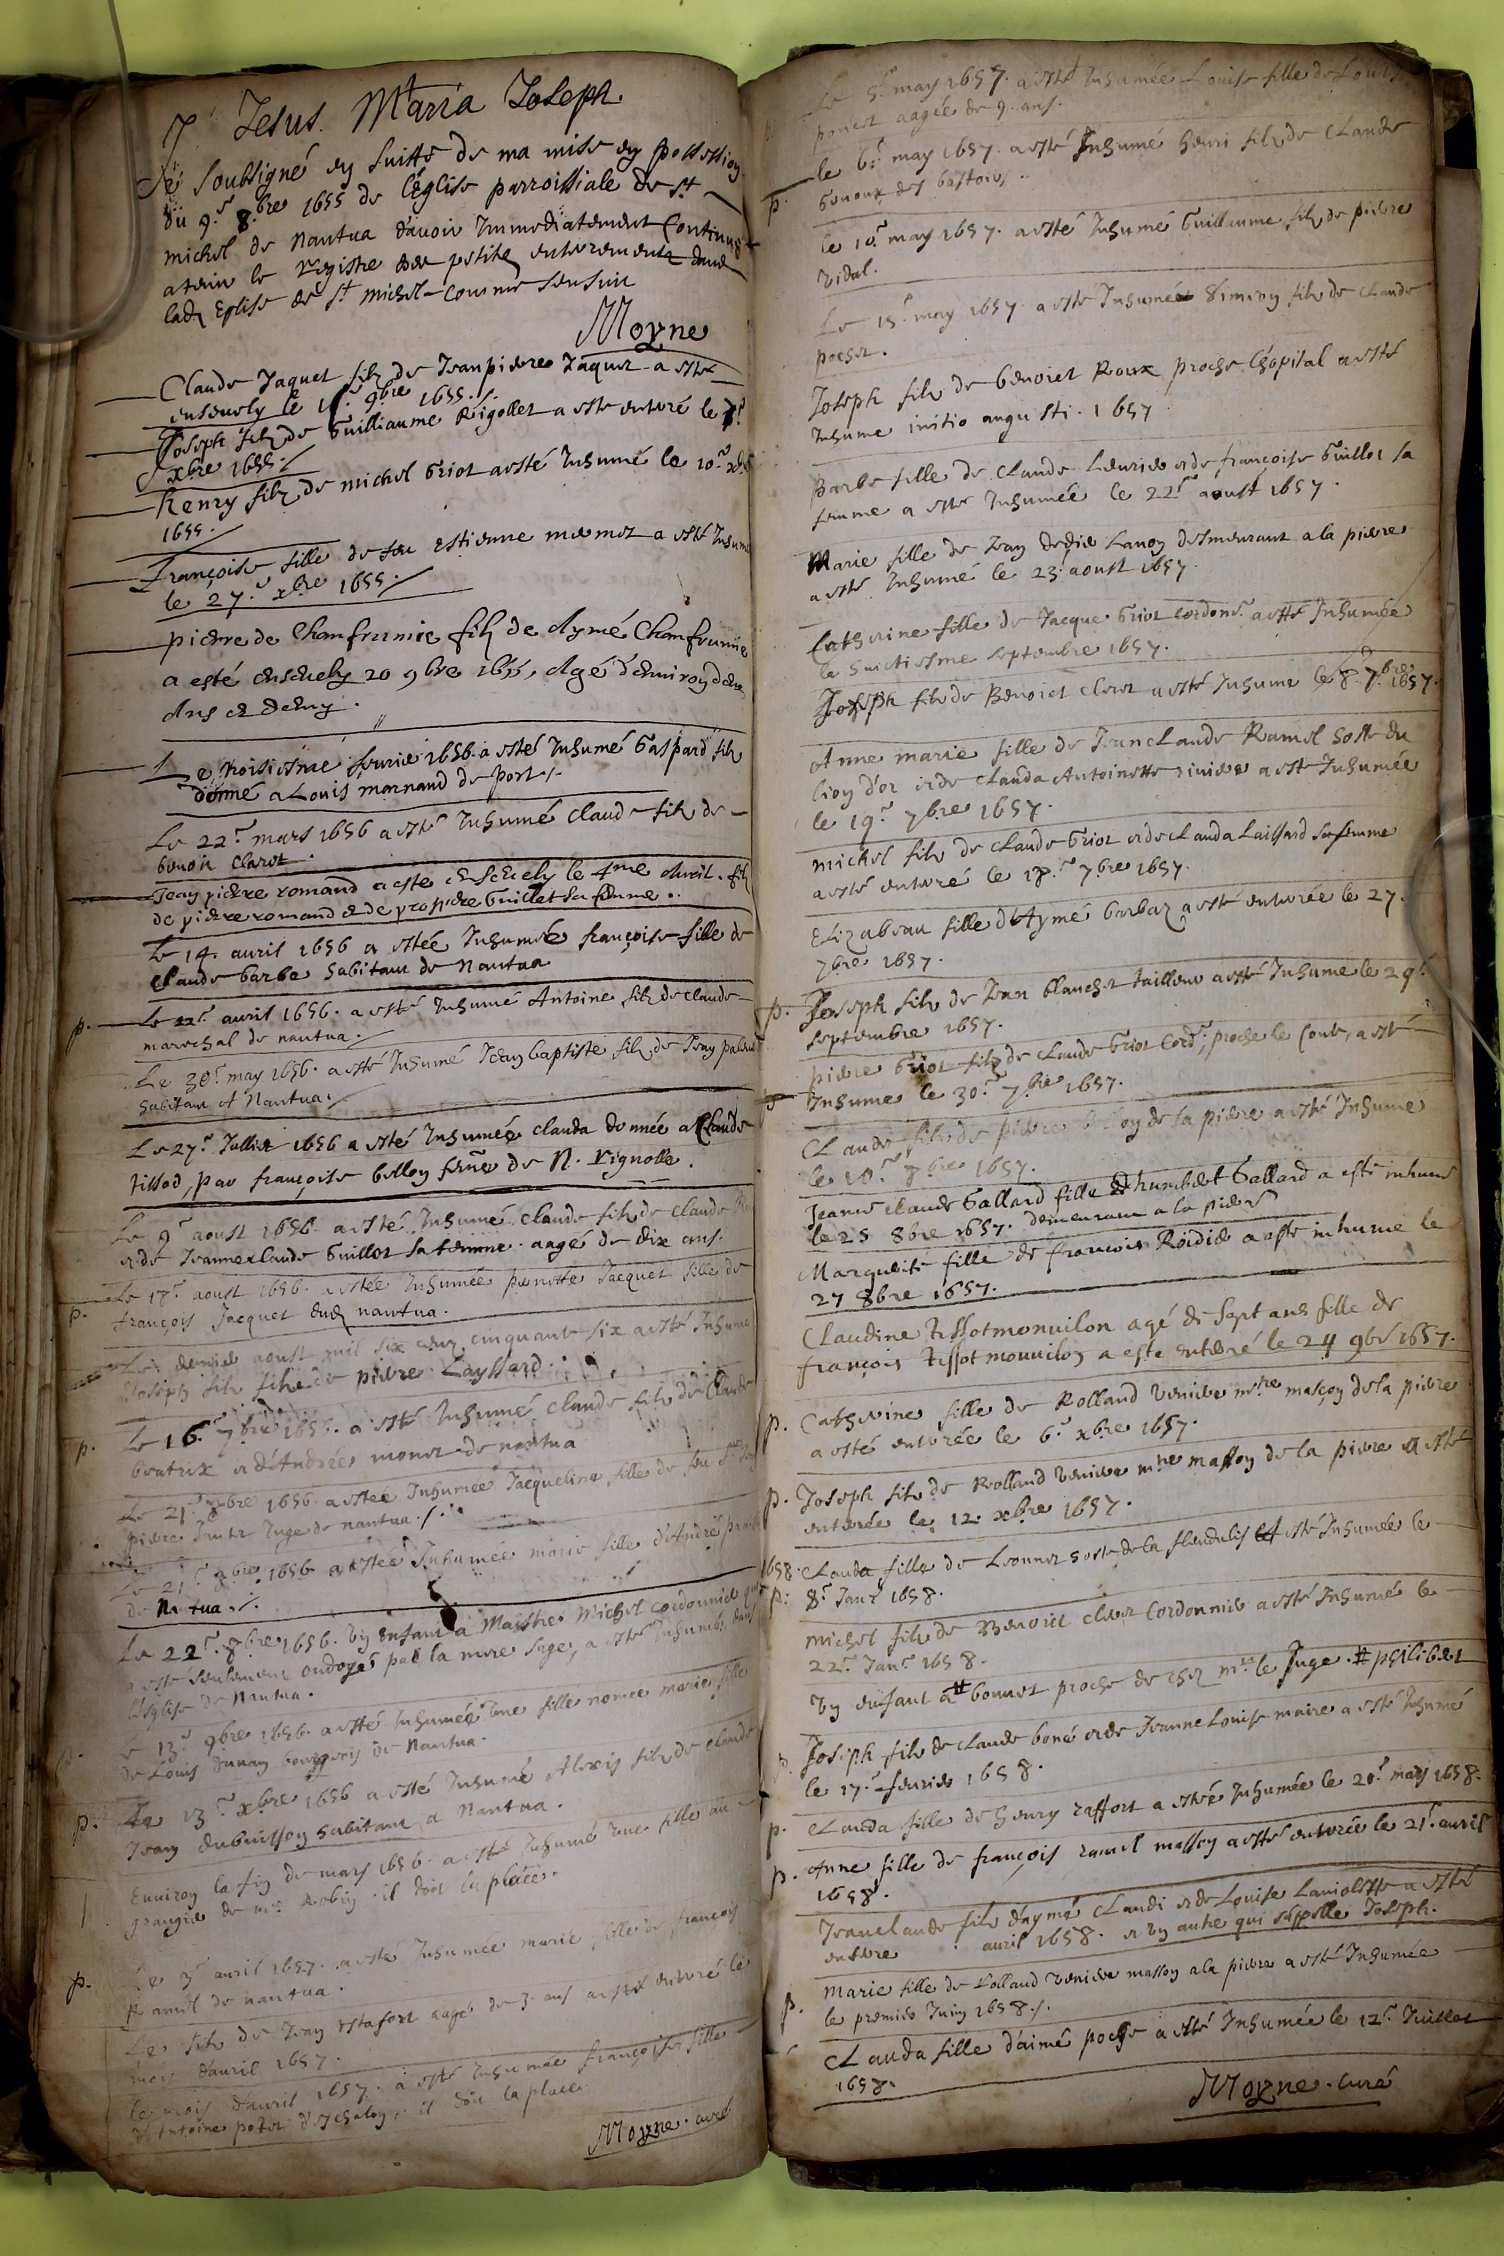 Jesus Maria Joseph
Je soubsigné en suitte de ma mise en possession
du 9.e 8.bre 1655 de l'église parroissiale de st
michel de Nantua d'avoir Immediatement Continué
a tenir le registre des petits enterrements dans
lad. Eglise de st michel comme sensuit
Moyne
Claude Jaquet filz de Jeanpierre Jaquet a esté
ensevely le 9bre 1655./.
Joseph filz de Guilliaume Rigollet a esté enterré le
xbre 1655./
henry filz de michel Griot a esté Inhumé le 10.e xbre
1655.
Françoise fille de feu Estienne mermet a esté Inhumé
le 27.e xbre 1655.
pierre de Chanfrumie filz de Aymé Chanfrumie
a esté ensevely 20 9bre 1655, Agé d'environ deux
Ans et demy.
Le troisiesme fevrier 1656 a esté Inhumé Gaspard filz
donné a Louis mornand de Port./.
Le 22.e mars 1656 a esté Inhumé Claude filz de
benoit Claret.
Jean pierre romand a esté ensevely le 4me Avril. filz
de pierre romand et de Guillet sa femme..
Le 14. avril 1656 a estée Inhumée françoise fille de
Claude barbe habitant de Nantua
p. Le 22.e avril 1656. a esté Inhumé Antoine filz de claude
marechal de nantua./.
Le 30.e may 1656. a esté Inhumé Jean baptiste filz de Jean
habitant a Nantua./.
Le 27.e Jullier 1656 a esté Inhumée clauda donnée a Claude
tissod, par françoise bellon feme de N. rignolle.
Le 9.e aoust 1656. a esté Inhumé Claude filz de Claude
et de Jeanneclaude Guillot sa femme. aagé de dix ans.
p. Le 17.e aoust 1656. a estée Inhumée pernette Jacquet fille de
françois Jacquet dud. nantua.
Le dernier aoust mil six cens cinquante six a esté Inhumé
Joseph filz de pierre Layssard.
p. Le 16.e 7bre 1656. a esté Inhumé Claude filz de Claude
beatrix et d'Andrée monet de nantua
Le 21.e bre 1656. a estée Inhumée Jacqueline fille de feu
pierre Juge de nantua./.
Le 21.e bre 1656 a estée Inhumée marie fille d'André
de Nantua./.
Le 22.e 8bre 1656. un enfant a Maistre Michel cordonnier qui
a esté seulement ondoyé par la mere sage, a esté Inhumé dans
l'église de Nantua.
Le 13.e 9bre 1656. a esté Inhumée une fille nomée marie fille
de Louis bourgeois de Nantua.
p. Le 13.e xbre 1656 a esté Inhumé Alexis filz de claude
Jean dubuisson habitant a Nantua.
Environ la fin de mars 1656. a esté Inhumé une fille au
grangier de mr. Robin. il doit la place.
p. Le 3.e avril 1657. a esté Inhumée marie fille de françois
Ramel de nantua.
Le filz de Jean estafort aagé de 3 ans a esté enterré le
mois d'avril 1657.
le mois d'avril 1657. a esté Inhumée françoise fille
d'Antoine potet d'Eschalon, il doit la place.
Moyne. curé
Le 5.e may 1657. a esté Inhumée Louise fille de Louis
poncet aagée de 9. ans.
p. le 6.e may 1657. a esté Inhumé henri filz de Claude
le 10.e may 1657. a esté Inhumé Guillaume filz de pierre
vidal.
Le 15.e may 1657. a esté Inhumé filz de Claude
pochet.
Joseph filz de benoict Roux proche l'hopital a esté
Inhumé initio augusti. 1657
Barbe fille de Claude et de françoise Guillot sa
femme a esté Inhumée le 22.e aoust 1657.
Marie fille de Jean desmeurant a la pierre
a esté Inhumé le 23. aoust 1657.
Catherine fille de Jacque Griot Cordon.r a esté Inhumée
le huictiesme septembre 1657.
Joseph filz de Benoict Claret a esté Inhumé le 8.e 7.bre 1657.
Anne marie fille de Jeanclaude Ramel hoste du
lion d'or et de Clauda Antoinette rivier a esté Inhumée
le 19.e 7bre 1657.
michel filz de Claude Griot et de Clauda Laissard sa femme
a esté enterré le 7bre 1657.
Elizabeau fille d'Aymé barbaz a esté enterrée le 27.
7bre 1657.
p. Joseph filz de Jean blanchet tailleur a esté Inhumé le 29.e
septembre 1657.
pierre Griot filz de Claude Griot Cord.r, proche le a esté
Inhumé le 30.e 7bre 1657.
Claude filz de pierre de la pierre a esté Inhumé
le 10.e bre 1657.
Jeanne claude Gallard fille de humbert Gallard a esté inhumé
le 25 8bre 1657. demeurant a la pierre
Marguerite fille de francois Roidier a esté inhumé le
27 8bre 1657.
Claudine tissotmonvilon agé de sept ans fille de
françois tissot monvilon a esté enterré le 24 9bre 1657.
p. Catherine fille de Rolland venier mtre masçon de la pierre
a esté enterrée le 6.e xbre 1657.
p. Joseph filz de Rolland venier mtre masson de la pierre a esté
enterrée le 12. xbre 1657.
1658. Clauda fille de Leonnet hoste de la a esté Inhumée le
p. 8.e Janr 1658.
michel filz de Benoict Claret Cordonnier a esté Inhumé le
22.e Janr 1658.
un enfant a # bonnet proche de chez mr. le Juge. # philibert
p. Joseph filz de Claude boné et de Jeanne Louise maire a esté Inhumé
le 17.e fevrier 1658.
p. Clauda fille de henry raffort a estée Inhumée le 20.e mars 1658.
p. Anne fille de françois ramel masson a esté enterrée le 21.e avril
1658.
Jeanclaude filz d'aymé Claudi et de Louise a esté
enterré avril 1658. et un autre qui s'appelle Joseph.
p. Marie fille de rolland venier masson a la pierre a esté Inhumée
le premier Juin 1658./.
Clauda fille d'aimé poche a esté Inhumée le 12.e Juillet
1658.
Moyne. curé